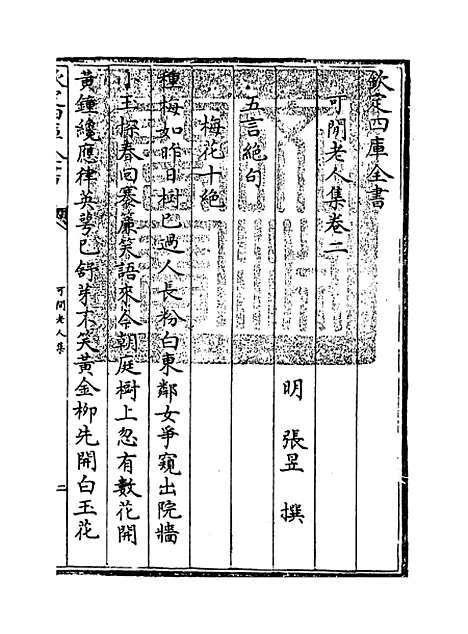 欽定四庫全書
可閒老人集卷二
明 張昱 撰
五言絕句
梅花十絕
種梅如昨日樹已過人長粉白東鄰女爭窺出院牆
小玉探春回褰簾笑語來今朝庭樹上忽有數花開
黃鐘纔應律英萼已舒芽不笑黃金柳先開白玉花
可閒老人集
二